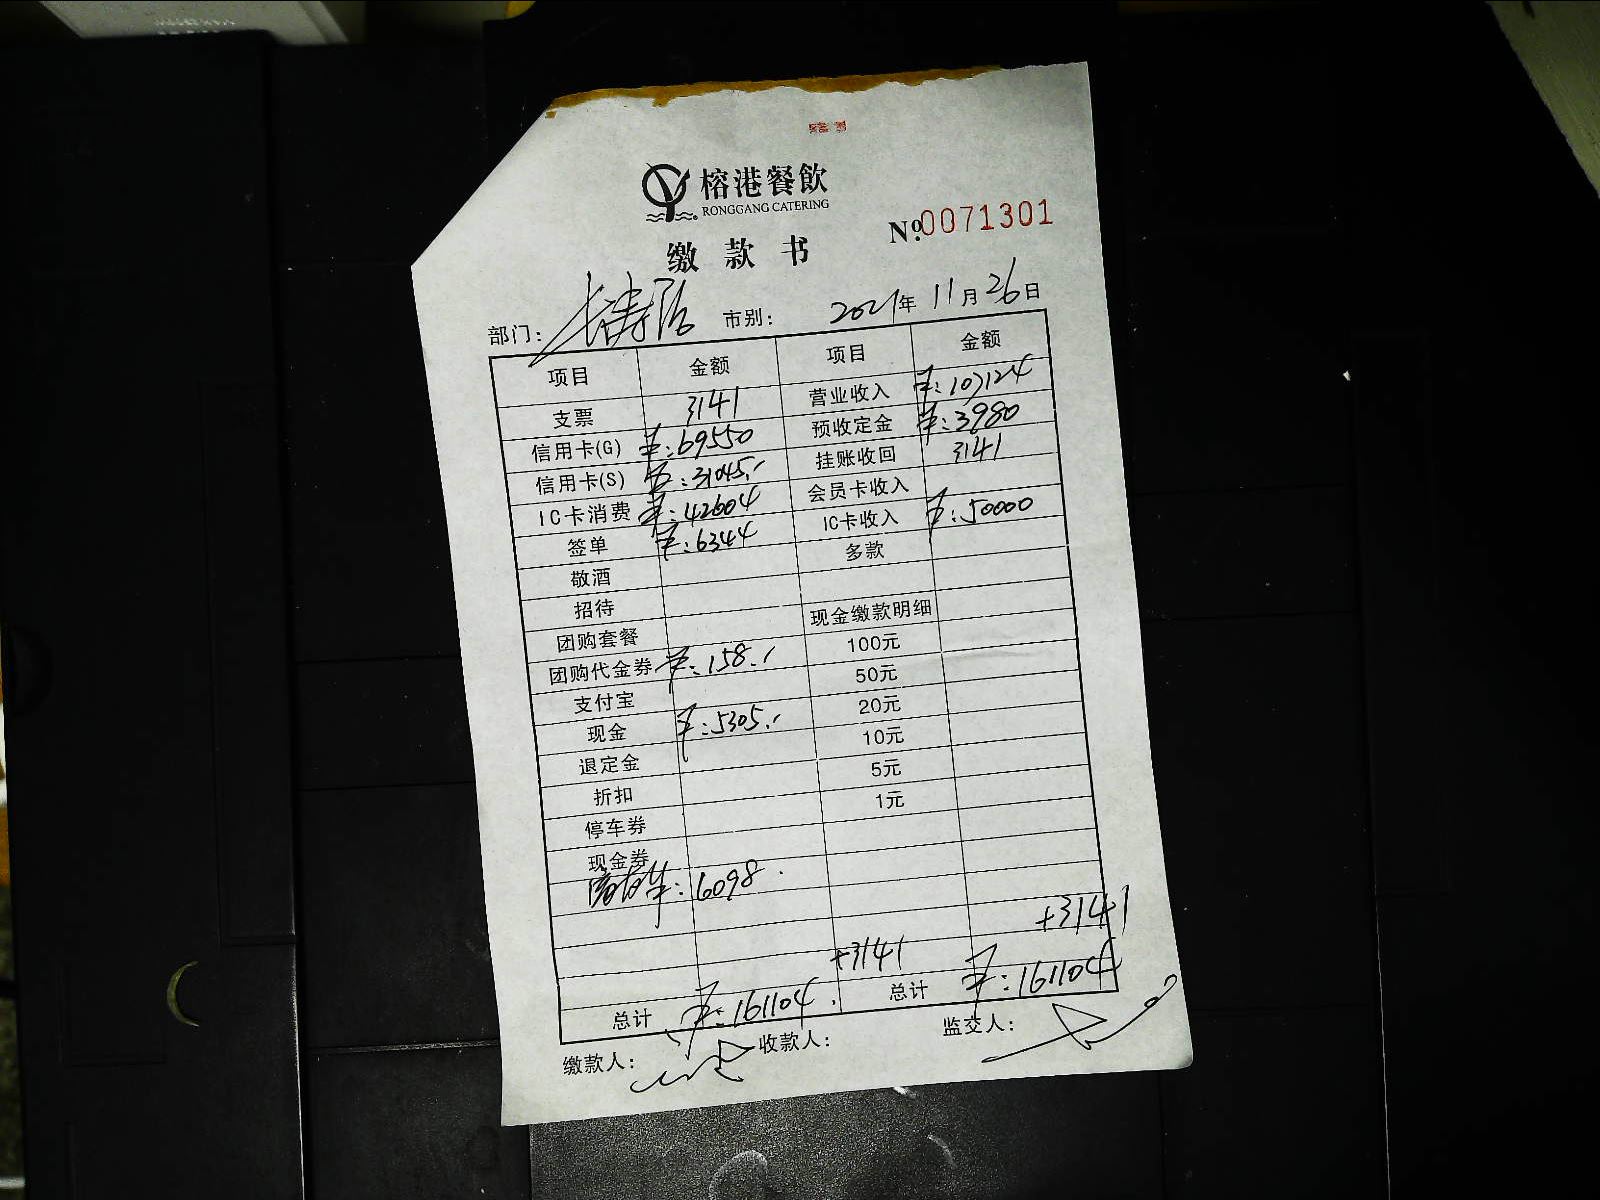 榕港餐飲
RONGGANG CATERING
No.0071301
缴款书
部门： 市别： 2021年 11月 26日
项目 金额 项目 金额
支票 3141 营业收入 ¥:107124
信用卡(G) ¥:69550 预收定金 ¥:3980
信用卡(S) ¥:31045.- 挂账收回 3141
IC卡消费 ¥:42604 会员卡收入
签单 ¥:6344 IC卡收入 ¥:50000
敬酒 多款
招待
团购套餐 现金缴款明细
团购代金券 ¥:158.- 100元
支付宝 50元
现金 ¥:5305.- 20元
退定金 10元
折扣 5元
停车券 1元
现金券
¥:6098.
+3141 +3141
总计 ¥:161104. 总计 ¥:161104
缴款人： 收款人： 监交人：